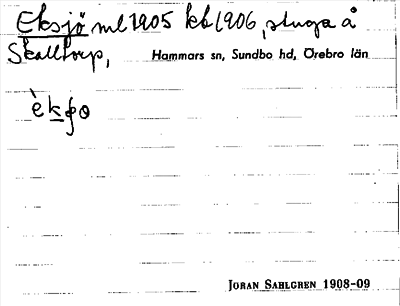 Eksjö ml 1905 kb 1906, stuga å
Skalltorp, Hammars sn, Sundbo hd, Örebro län
JÖRAN SAHLGREN 1908-09